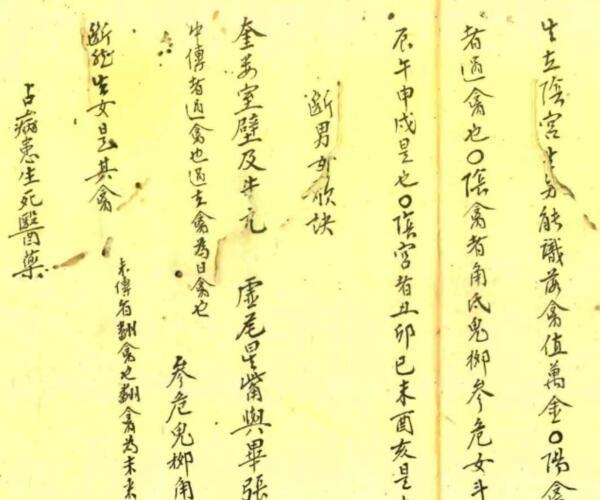 生立陰宮生男能識茲禽值萬金〇陽禽
者過禽也〇陰禽者角氐鬼柳参危女斗
辰午申戌是也〇陰宮者丑卯巳未酉亥是
断男女歌訣
奎婁室壁及牛亢　虛尾星嘴與畢張
中傳者過禽也過去禽為日禽也
参危鬼柳角
断然生女是其禽
未傳者翻禽也翻禽為未來
占病患生死醫藥